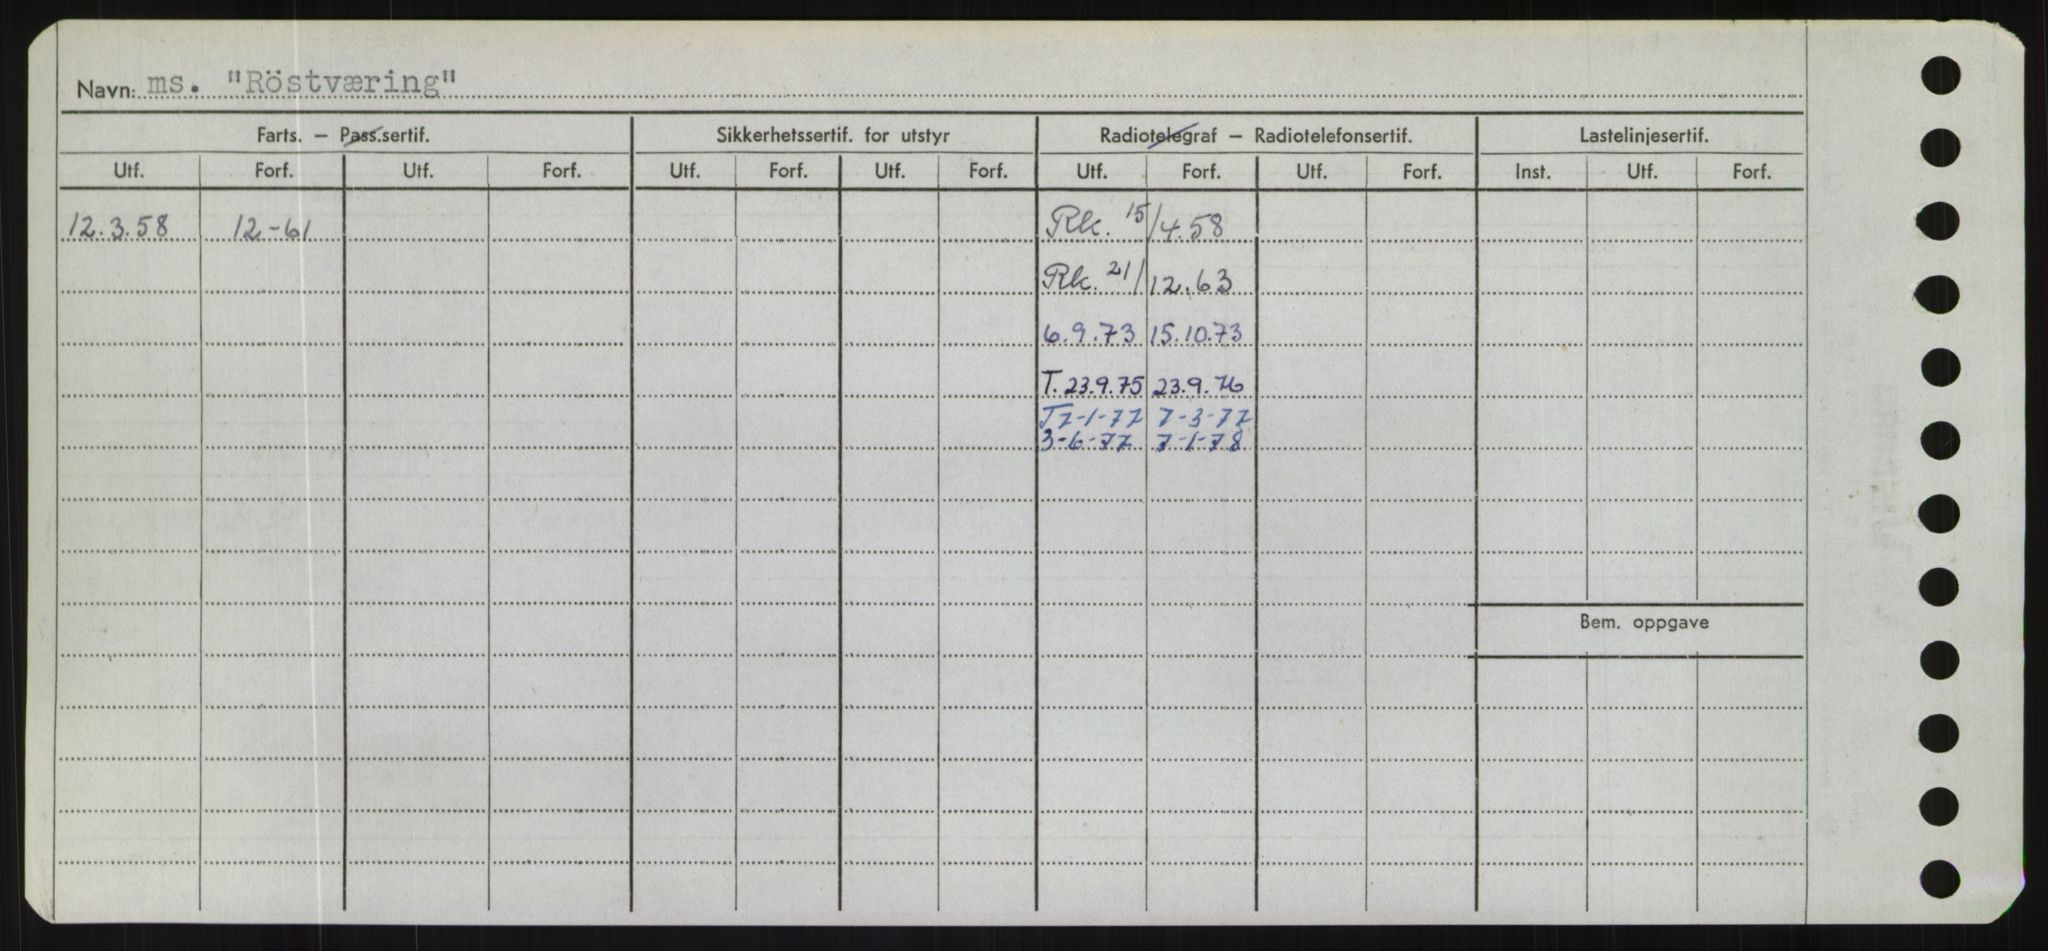 Navn: ms. "Röstværing"
Farts. – Pass.sertif. Sikkerhetssertif. for utstyr Radiotelegraf – Radiotelefonsertif. Lastelinjesertif.
Utf. Forf. Utf. Forf. Utf. Forf. Utf. Forf. Utf. Forf. Utf. Forf. Inst. Utf. Forf.
12.3.58 12-61 Rk. 15/4.58
Rk. 21/12.63
6.9.73 15.10.73
T. 23.9.75 23.9.76
T7-1-77 7-3-77
3-6-77 7-1-78
Bem. oppgave